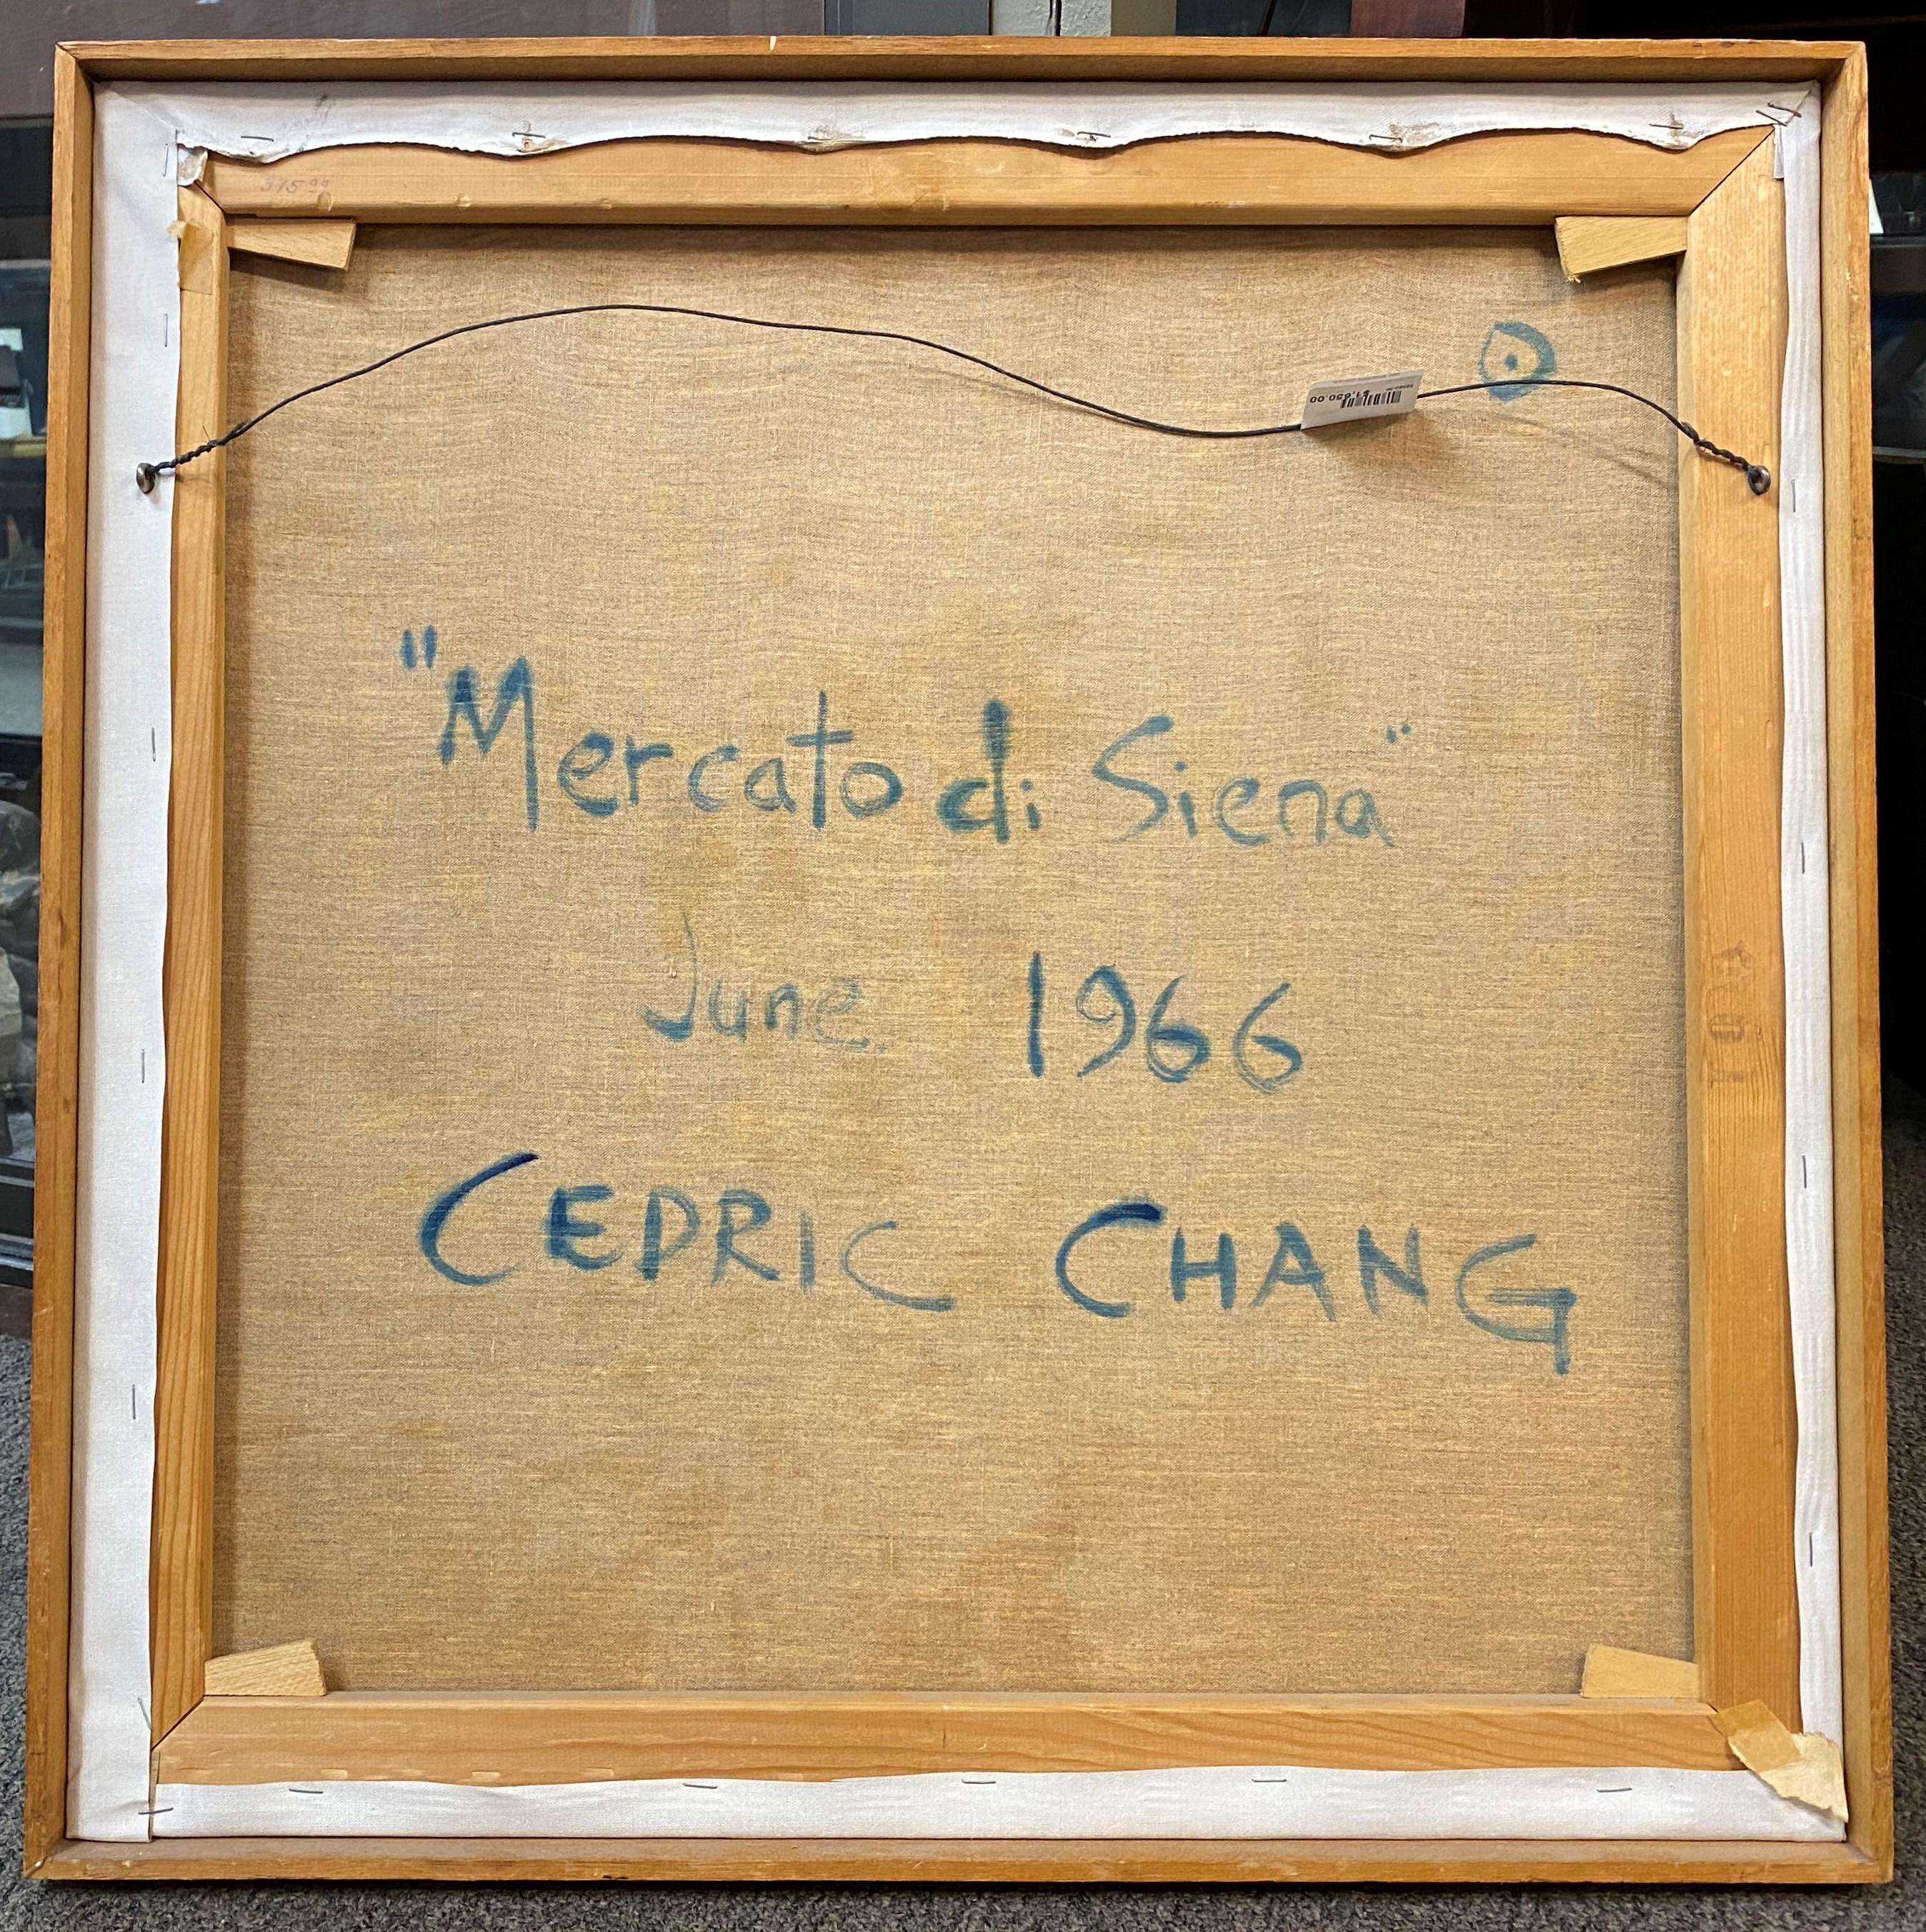 $1,650.00
"Mercato di Siena"
June 1966
CEDRIC CHANG